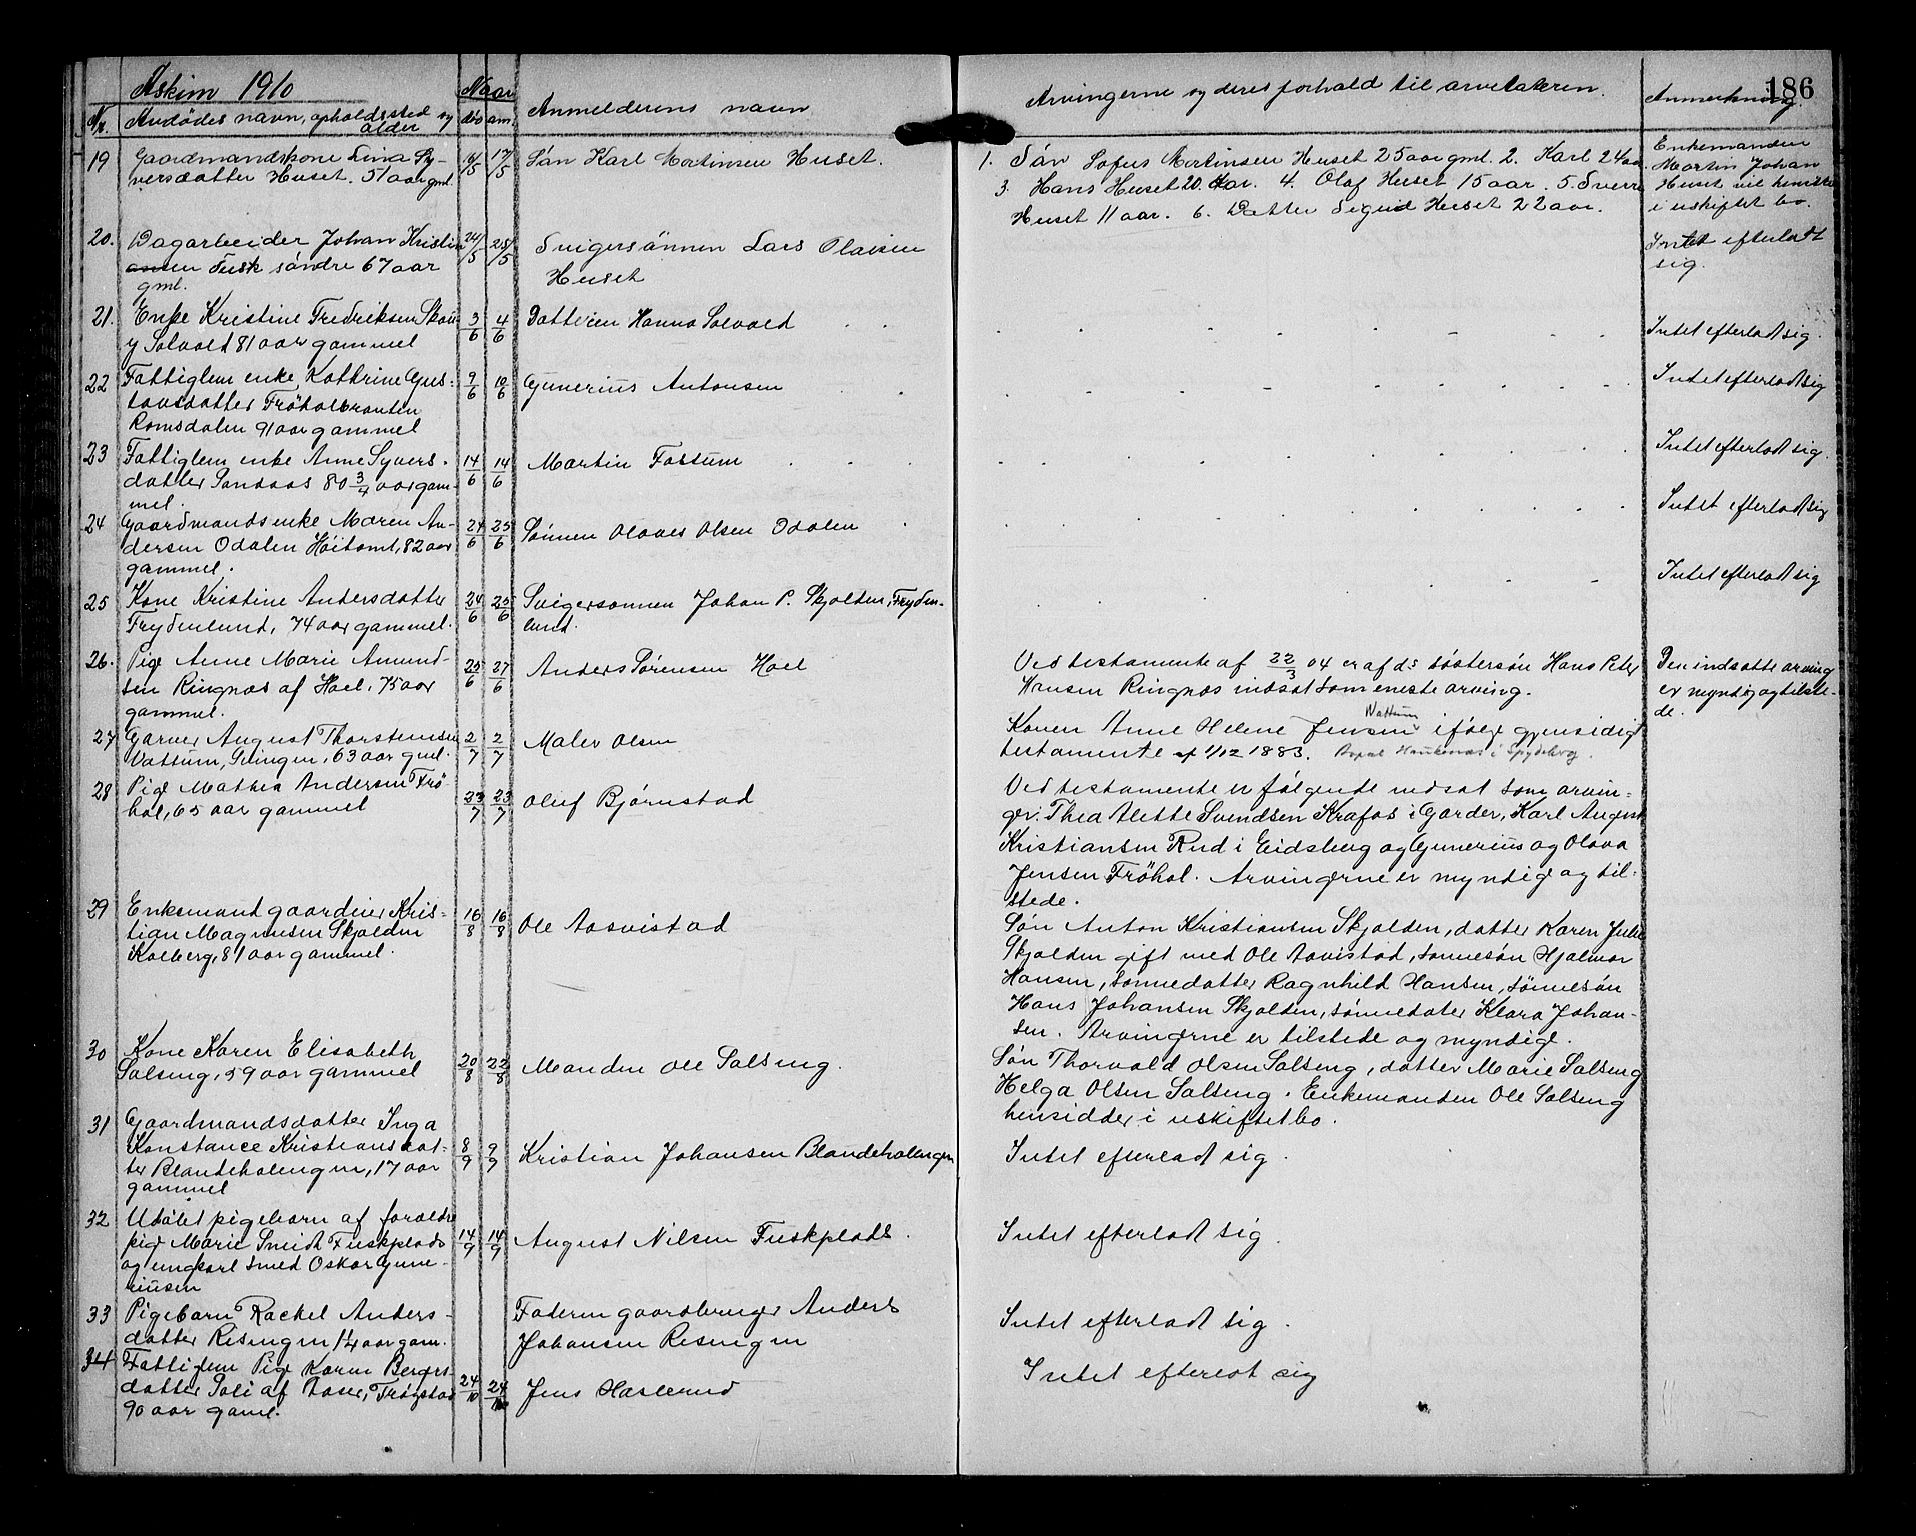 Askim 1910
Naar
Nr. Avdødes navn, opholdssted og alder
død anm.
Anmelderens navn
Arvingerne og deres forhold til arveladeren.
Anmerkning
186
19 Gaardmandskone Lina Sy-
versdatter Huset. 51 aar gml.
16/5 17/5 Søn Karl Martinsen Huset.
1. Søn Sofus Martinsen Huset 25 aar gml. 2. Karl 24 aar
3. Hans Huset 20 aar. 4. Olaf Huset 15 aar. 5. Sverre
Huset 11 aar. 6. Datter Sigrid Huset 22 aar.
Enkemanden
Martin Johan
Huset vil hensidde
i uskiftet bo.
20. Dagarbeider Johan Kristian
sen Tusk søndre 67 aar
gml.
24/5 25/5 Svigersønnen Lars Olausen
Huset
Intet efterladt
sig.
21. Enke Kristine Fredriksen Skou
y Solvold 81 aar gammel
3/6 4/6 Datteren Hanna Solvold
Intet efterladt sig.
22 Fattiglem enke Kathrine Gus-
tavsdatter Frøholbraaten
Romsdalen 91 aar gammel
9/6 10/6 Gunerius Antonsen
Intet efterladt sig
23 Fattiglem enke Anne Syvers-
datter Sandaas 80 3/4 aar gam-
mel.
14/6 14/6 Martin Fossum
Intet efterladt sig.
24 Gaardmandsenke Maren An-
dersen Odalen Høitomt, 82 aar
gammel.
24/6 25/6 Sønnen Olaves Olsen Odalen
Intet efterladt sig
25 Kone Kristine Andersdatter
Frydenlund, 74 aar gammel.
24/6 25/6 Svigersønnen Johan P. Skjolden, Fryden-
lund.
Intet efterladt sig
26. Pige Anne Marie Amund-
sen Ringnæs af Hoel, 75 aar
gammel.
25/6 27/6 Anders Sørensen Hoel
Ved testamente af 22/3 04 er afd:s søstersøn Hans Peter
Hansen Ringnæs indsat som eneste arving.
Den indsatte arving
er myndig og tilste-
de.
27 Garver August Thorstensen
Vattum, Svingen, 63 aar gml.
2/7 2/7 Maler Olsen
Vattum
Konen Anne Helene Jensen ifølge gjensidig
testamente af 1/12 1883. i Spydeberg
28 Pige Mathea Andersen Frø
hol, 65 aar gammel
23/7 23/7 Oluf Bjørnstad
Ved testamente er følgende indsat som arvin-
ger: Thea Alette Svendsen Krafos i Garder, Karl August
Kristiansen Rud i Eidsberg og Gunerius og Olava
Jensen Frøhol. Arvingerne er myndige og til-
stede.
29 Enkemand gaardeier Kris-
tian Magnusen Skjolden
Kolberg, 81 aar gammel.
16/8 16/8 Ole Aasvistad
Søn Anton Kristiansen Skjolden, datter Karen Julie
Skjolden gift med Ole Aasvistad, sønnesøn Hjalmar
Hansen, sønnedatter Ragnhild Hansen, sønnesøn
Hans Johansen Skjolden, sønnedatter Klara Johan-
sen. Arvingerne er tilstede og myndige.
30 Kone Karen Elisabeth
Solseng, 59 aar gammel
20/8 22/8 Manden Ole Solseng.
Søn Thorvald Olsen Solseng, datter Marie Solseng
Helga Olsen Solseng. Enkemanden Ole Solseng
hensidder i uskiftet bo.
31 Gaardmandsdatter Inga
Konstance Kristiansdat-
ter Blandeholengen, 17 aar
gammel
8/9 9/9 Kristian Johansen Blandeholengen
Intet efterladt sig.
32 Udøbt pigebarn af forældre
pige Marie Smidt Fuskplads
og ungkarl smed Oskar Gune-
riusen
14/9 14/9 August Nilsen Fuskplads.
Intet efterladt sig.
33 Pigebarn Rackel Anders-
datter Risingen 1 1/4 aar gam.
Faderen gaardbruger Anders
Johansen Risingen
Intet efterladt sig.
34 Fattiglem Pige Karen Bergers-
datter Soli af Aaser, Trøgstad
90 aar gamel.
24/10 24/10 Jens Haslerud
Intet efterlat sig